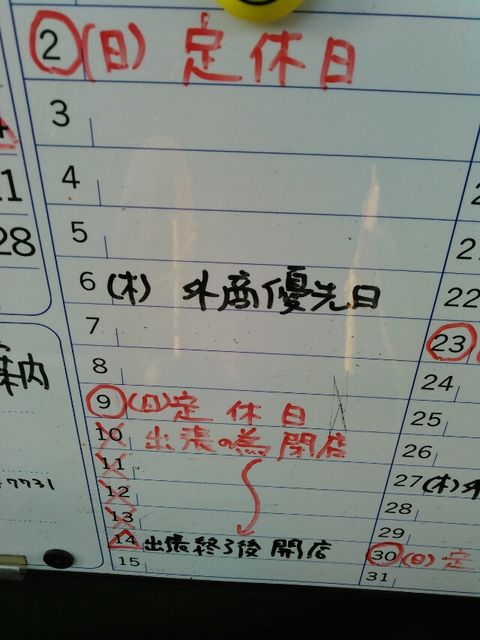 2 (日) 定休日
3
4
5
6 (木) 外商優先日
7
8
9 (日) 定休日
10 出張の為閉店
11
12
13
14 出張終了後開店
15
11
28
案内
7731
22
23
24
25
26
27 (木) 外
28
29
30 (日) 定
31